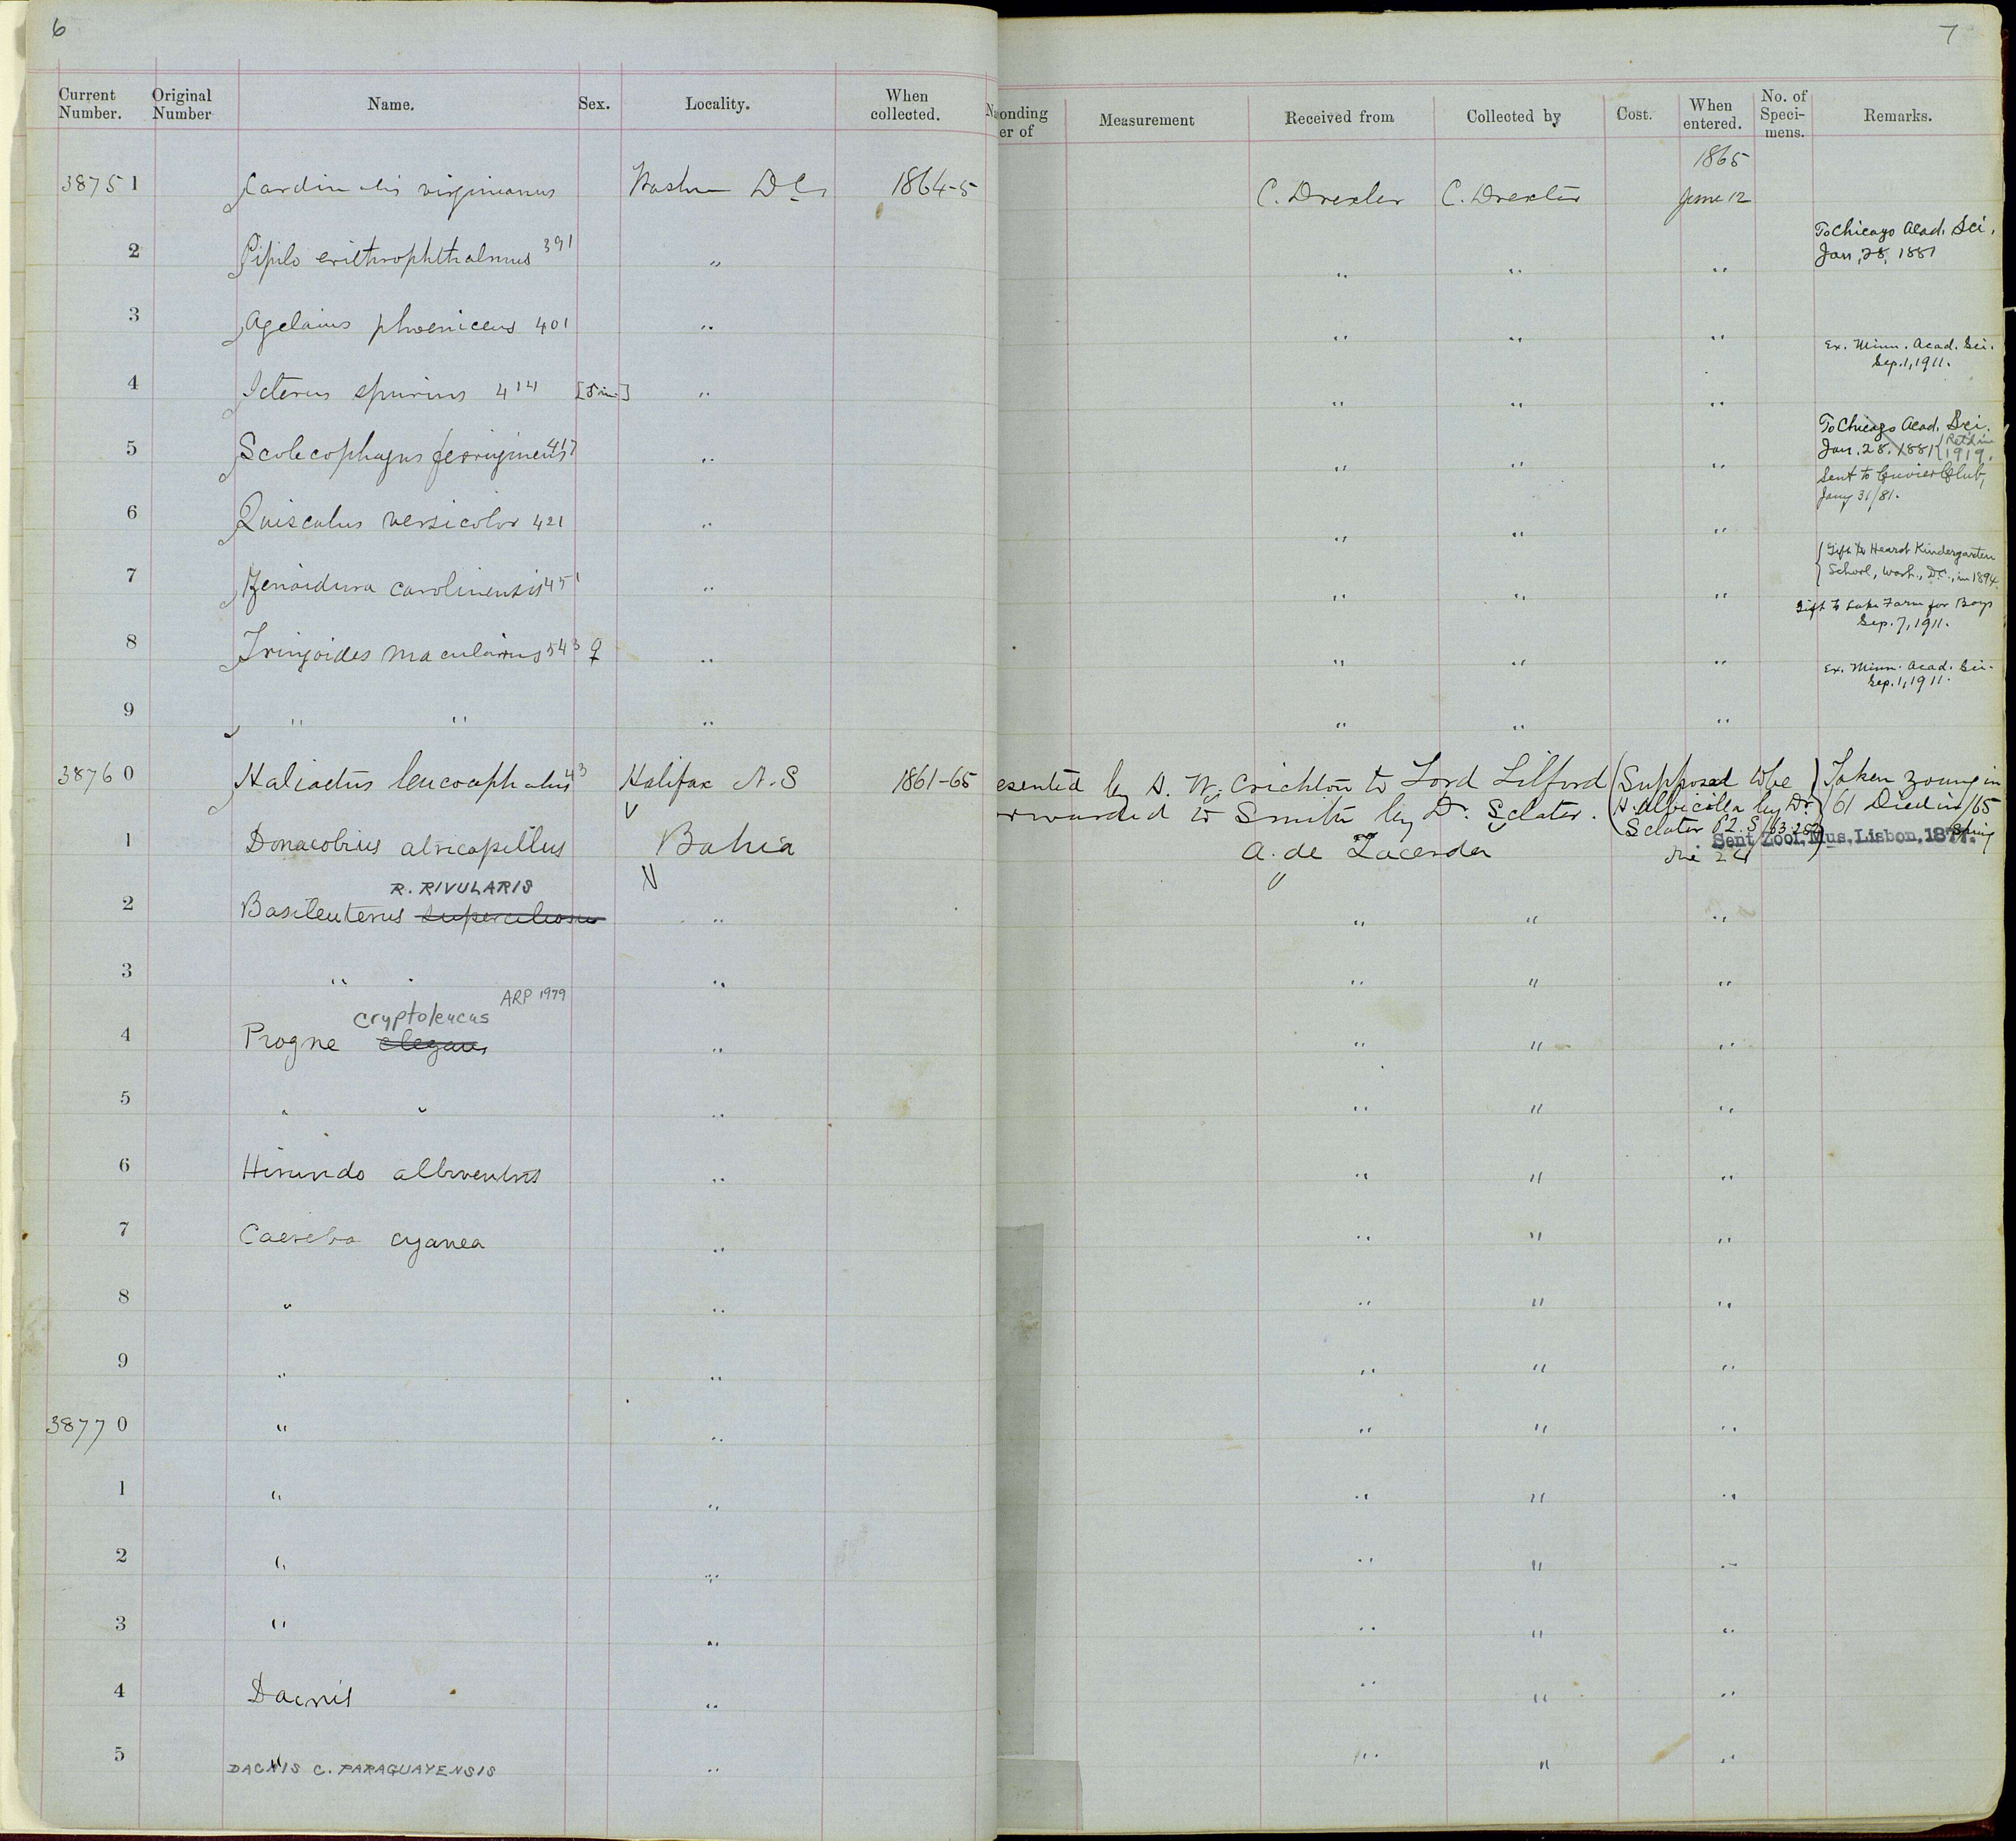 6
7
Current Number. Original Number Name. Sex. Locality. When collected.
onding er of Measurement Received from Collected by Cost. When entered. No. of Speci- mens. Remarks.
1865
38751 Cardinalis virginianus Washn D C 1864-5 C. Drexler C. Drexler June 12
2 Pipilo erithrophthalmus 391 " " " " To Chicago Acad. Sci.
Jan. 28, 1881
3 Agelaius phoeniceus 401 " " " " Ex. Minn. Acad. Sci.
Sep. 1, 1911.
4 Icterus spurius 414 " " " "
5 Scolecophagus ferrugineus 417 " " " " To Chicago Acad. Sci.
Jan. 28. 1881 { Ret'd in 1919.
Sent to Cuvier Club,
Jany 31/81.
6 Quiscalus versicolor 421 " " " "
{ Gift to Hearst Kindergarten
School, Wash., D.C., in 1894
7 Zenaidura carolinensis 451 " " " "
Gift to Lake Farm for Boys
Sep. 7, 1911.
8 Tringoides macularius 543 ♀ " " " "
Ex. Minn. Acad. Sci.
Sep. 1, 1911.
9 " " " " " "
38760 Haliaetus leucocephalus 43 Halifax N.S 1861-65 esented by D. W. Crichton to Lord Lilford (Supposed to be ) Taken young in
rwarded to Smith by Dr. Sclater. H. albicilla by Dr. 61 Died in /65
Sclater P.Z.S /63 253) Spring
Sent Zool. Mus. Lisbon, 1877.
1 Donacobius atricapillus Bahia A. de Lacerda " 24
R. RIVULARIS
2 Basileuterus superciliosus " " " "
3 " " " " " "
ARP 1979
cryptoleucus
4 Progne elegans " " " "
5 " " " " " "
6 Hirundo albiventris " " " "
7 Caereba cyanea " " " "
8 " " " " "
9 " " " " "
38770 " " " " "
1 " " " " "
2 " " " " "
3 " " " " "
4 Dacnis " " " "
5 " " " " "
DACNIS C. PARAGUAYENSIS